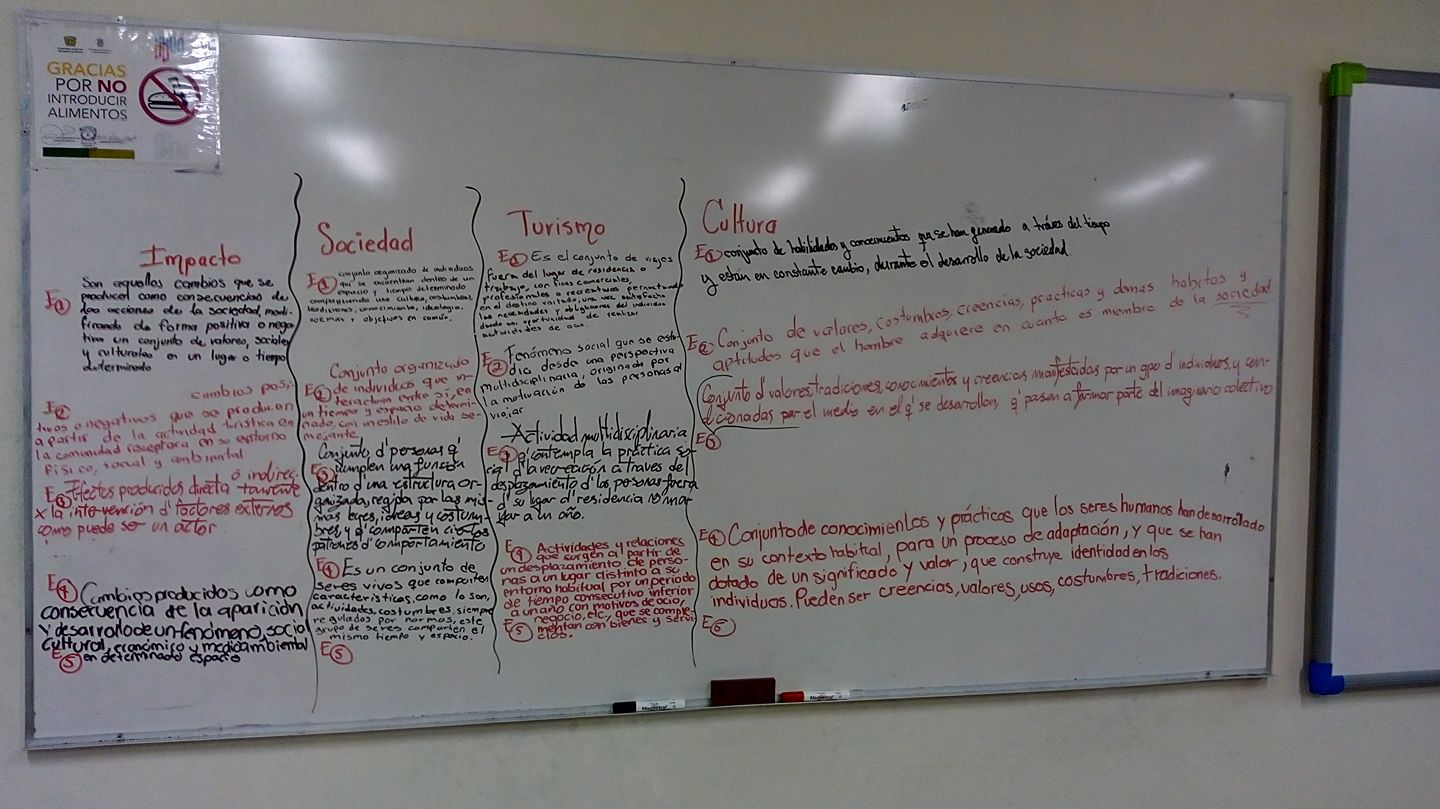 GRACIAS
POR NO
INTRODUCIR
ALIMENTOS
Impacto
E1 Son aquellos cambios que se
producen como consecuencias de
las acciones de la sociedad, modi-
ficando de forma positiva o nega-
tiva un conjunto de valores, sociales
y culturales en un lugar o tiempo
determinado
E2 cambios posi-
tivos o negativos que se producen
a partir de la actividad turística en
la comunidad receptora en su entorno
físico, social y ambiental
E3 Efectos producidos directa o indirec-
tamente
x la intervención d' factores externos
como puede ser un actor.
E4 Cambios producidos como
consecuencia de la aparición
y desarrollo de un fenómeno, social
cultural, económico y medioambiental
en determinado espacio
E5
Sociedad
E1 conjunto organizado de individuos
que se encuentran dentro de un
espacio y tiempo determinado
compartiendo una cultura, costumbres,
tradiciones, conocimiento, ideología,
normas y objetivos en común.
E2 Conjunto organizado
de individuos que in-
teractúan entre sí, en
un tiempo y espacio determi-
nado, con un estilo de vida se-
mejante
E3 Conjunto d' personas q'
cumplen una función
dentro d' una estructura or-
ganizada, regida por las mis-
mas leyes, ideas y costum-
bres, y q' comparten ciertos
patrones d' comportamiento
E4 Es un conjunto de
seres vivos que comparten
características, como lo son,
actividades, costumbres, siempre
regulados por normas, este
grupo de seres comparten el
mismo tiempo y espacio.
E5
Turismo
E1 Es el conjunto de viajes
fuera del lugar de residencia o
trabajo, con fines comerciales,
profesionales o recreativos
en el destino visitado, una vez satisfecho
las necesidades y obligaciones del individuo
dando oportunidad de realizar
actividades de ocio.
E2 Fenómeno social que se estu-
dia desde una perspectiva
multidisciplinaria, originada por
la motivación de las personas al
viajar
E3 Actividad multidisciplinaria
q' contempla la práctica so-
cial d' la recreación a través del
desplazamiento d' las personas fuera
d' su lugar d' residencia no ma-
yor a un año.
E4 Actividades y relaciones
que surgen al partir de
un desplazamiento de perso-
nas a un lugar distinto a su
entorno habitual por un periodo
de tiempo consecutivo inferior
a un año con motivos de ocio,
negocio, etc, que se comple-
mentan con bienes y servi-
cios.
E5
Cultura
E1 conjunto de habilidades y conocimientos que se han generado a través del tiempo
y están en constante cambio, durante el desarrollo de la sociedad.
E2 Conjunto de valores, costumbres, creencias, prácticas y demás habitos y
aptitudes que el hombre adquiere en cuanto es miembro de la sociedad
Conjunto d' valores, tradiciones, conocimientos y creencias manifestadas por un gpo d' individuos, y con-
dicionadas por el medio en el q' se desarrollan, q' pasan a formar parte del imaginario colectivo
E3
E4 Conjunto de conocimientos y prácticas que los seres humanos han desarrollado
en su contexto habitual, para un proceso de adaptación, y que se han
dotado de un significado y valor, que construye identidad en los
individuos. Pueden ser creencias, valores, usos, costumbres, tradiciones.
E5